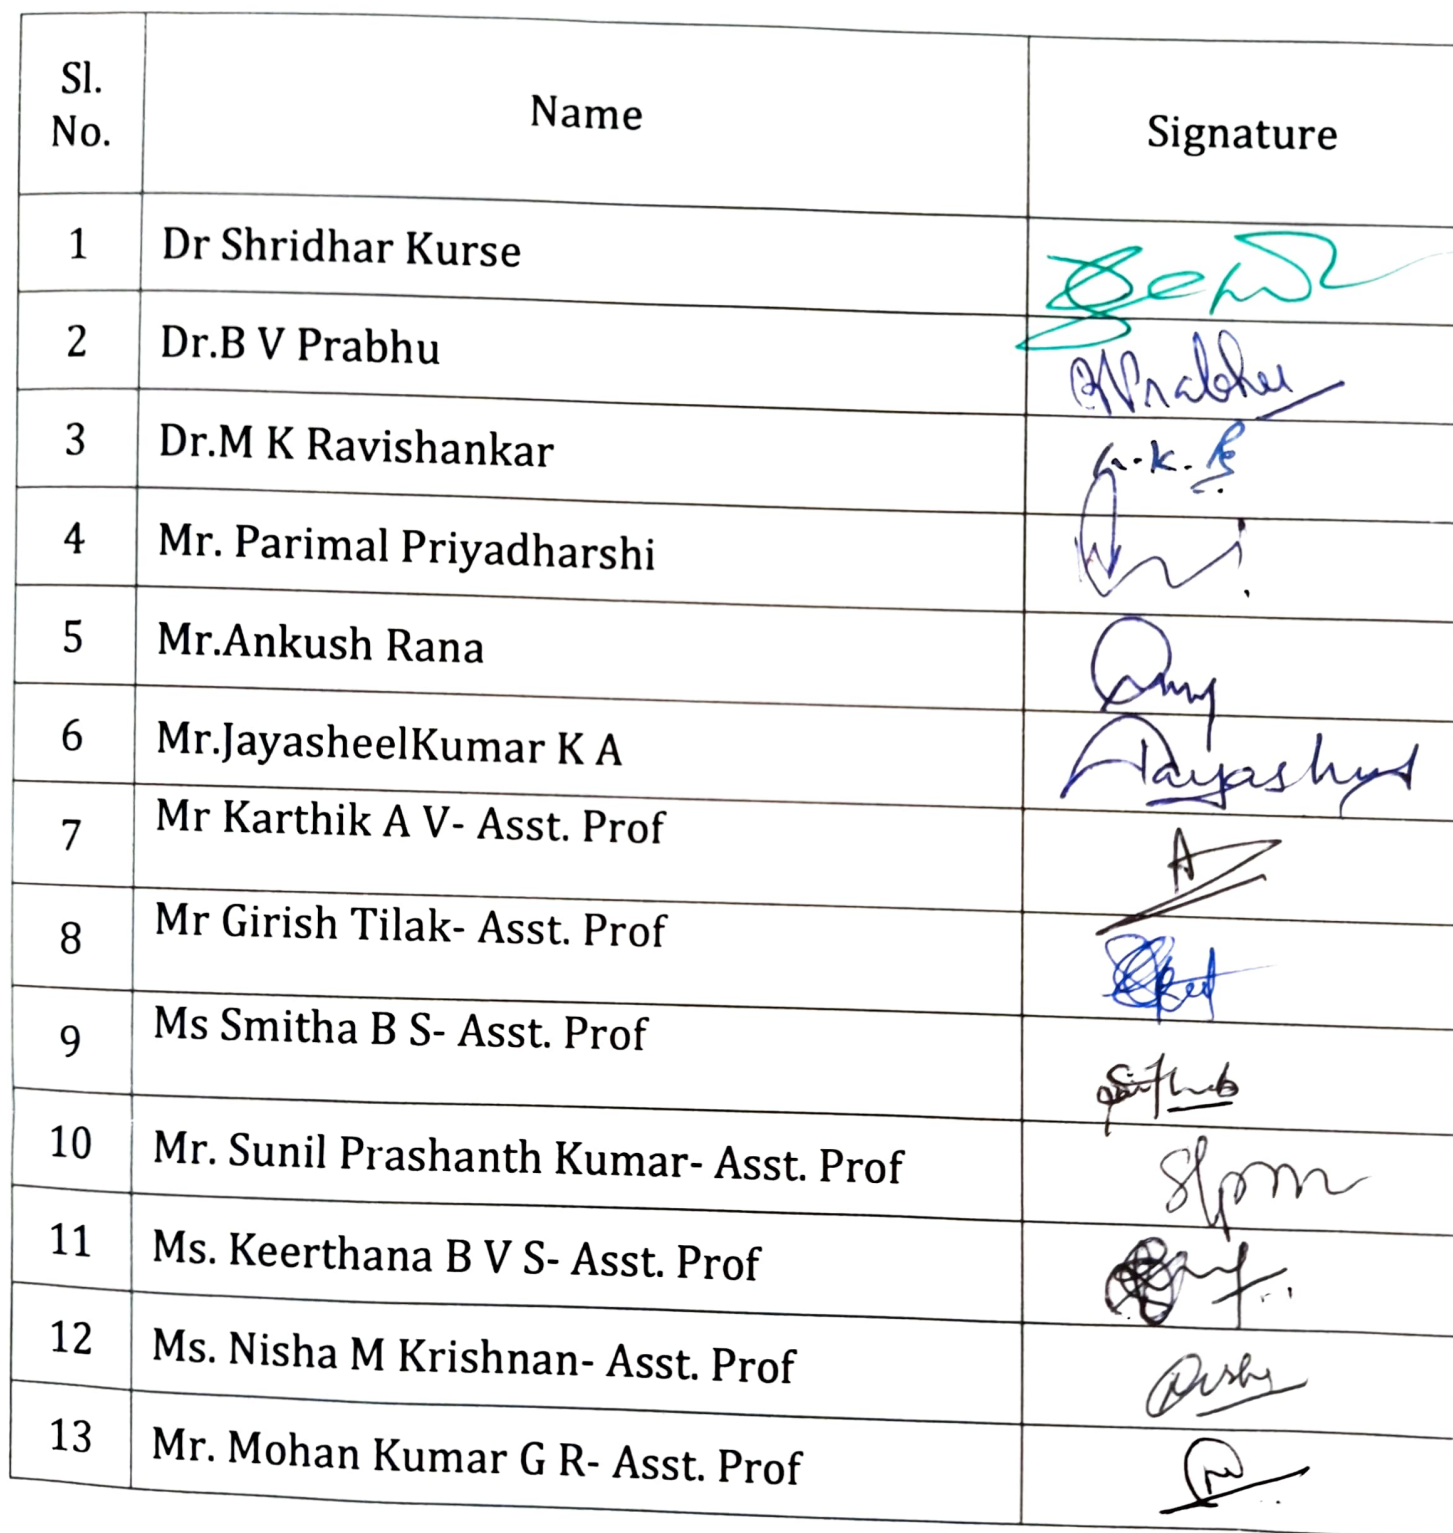 Sl.
No.
Name
Signature
1 Dr Shridhar Kurse
2 Dr.B V Prabhu BVPrabhu
3 Dr.M K Ravishankar
4 Mr. Parimal Priyadharshi
5 Mr.Ankush Rana
6 Mr.JayasheelKumar K A
7 Mr Karthik A V- Asst. Prof
8 Mr Girish Tilak- Asst. Prof
9 Ms Smitha B S- Asst. Prof
10 Mr. Sunil Prashanth Kumar- Asst. Prof
11 Ms. Keerthana B V S- Asst. Prof
12 Ms. Nisha M Krishnan- Asst. Prof
13 Mr. Mohan Kumar G R- Asst. Prof